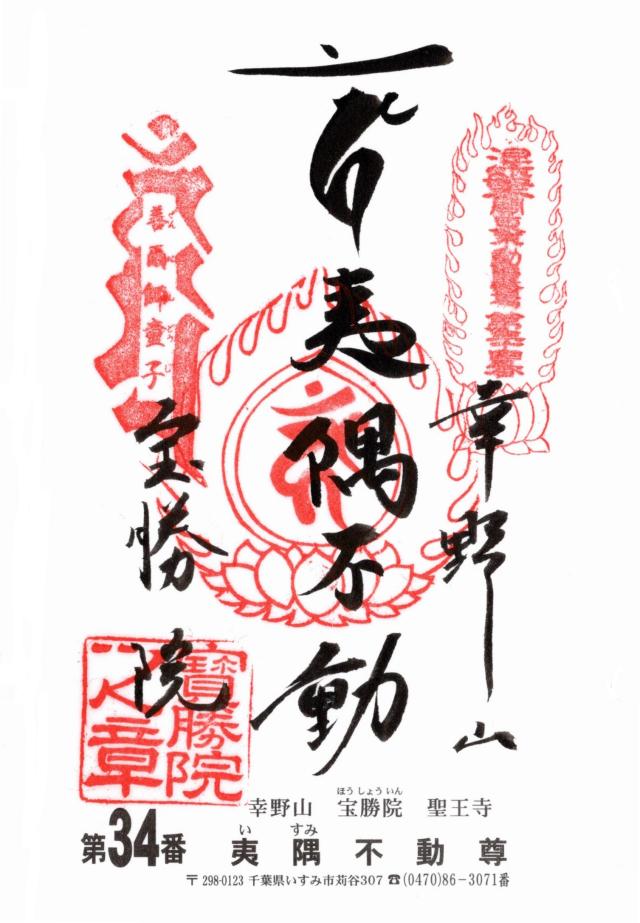 幸野山
夷隅不動
善爾師童子
宝勝院
寶勝院
之章
ほうしょういん
幸野山 宝勝院 聖王寺
い すみ
第34番 夷隅不動尊
〒298-0123 千葉県いすみ市苅谷307 ☎(0470)86-3071番